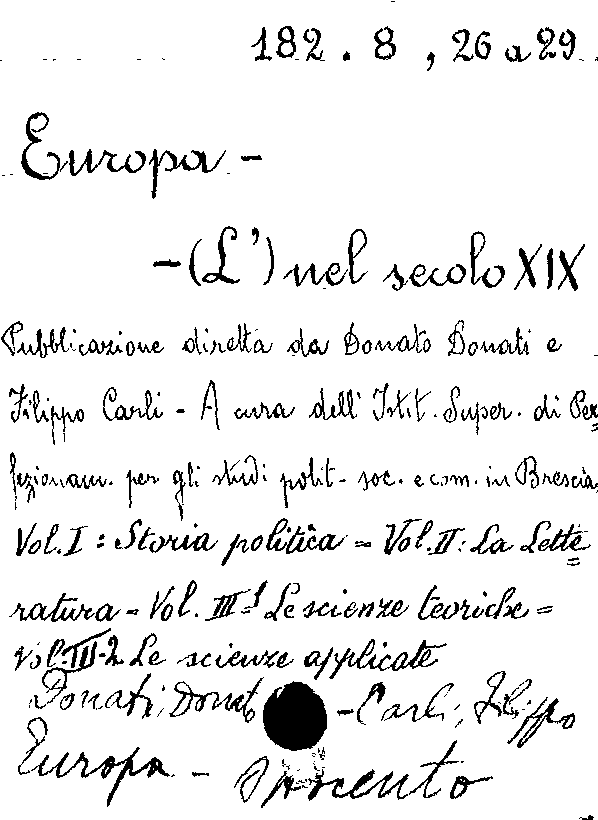 182 . 8 , 26 a 29
Europa -
- (L') nel secolo XIX
Pubblicazione diretta da Donato Donati e
Filippo Carli - A cura dell' Istit. Super. di Per=
fezionam. per gli studi polit. soc. econ. in Brescia,
Vol. I : Storia politica = Vol. II : La Lette=
ratura = Vol. III-1 Le scienze teoriche =
Vol. III-2 Le scienze applicate
Donati, Donato - Carli, Filippo
Europa -